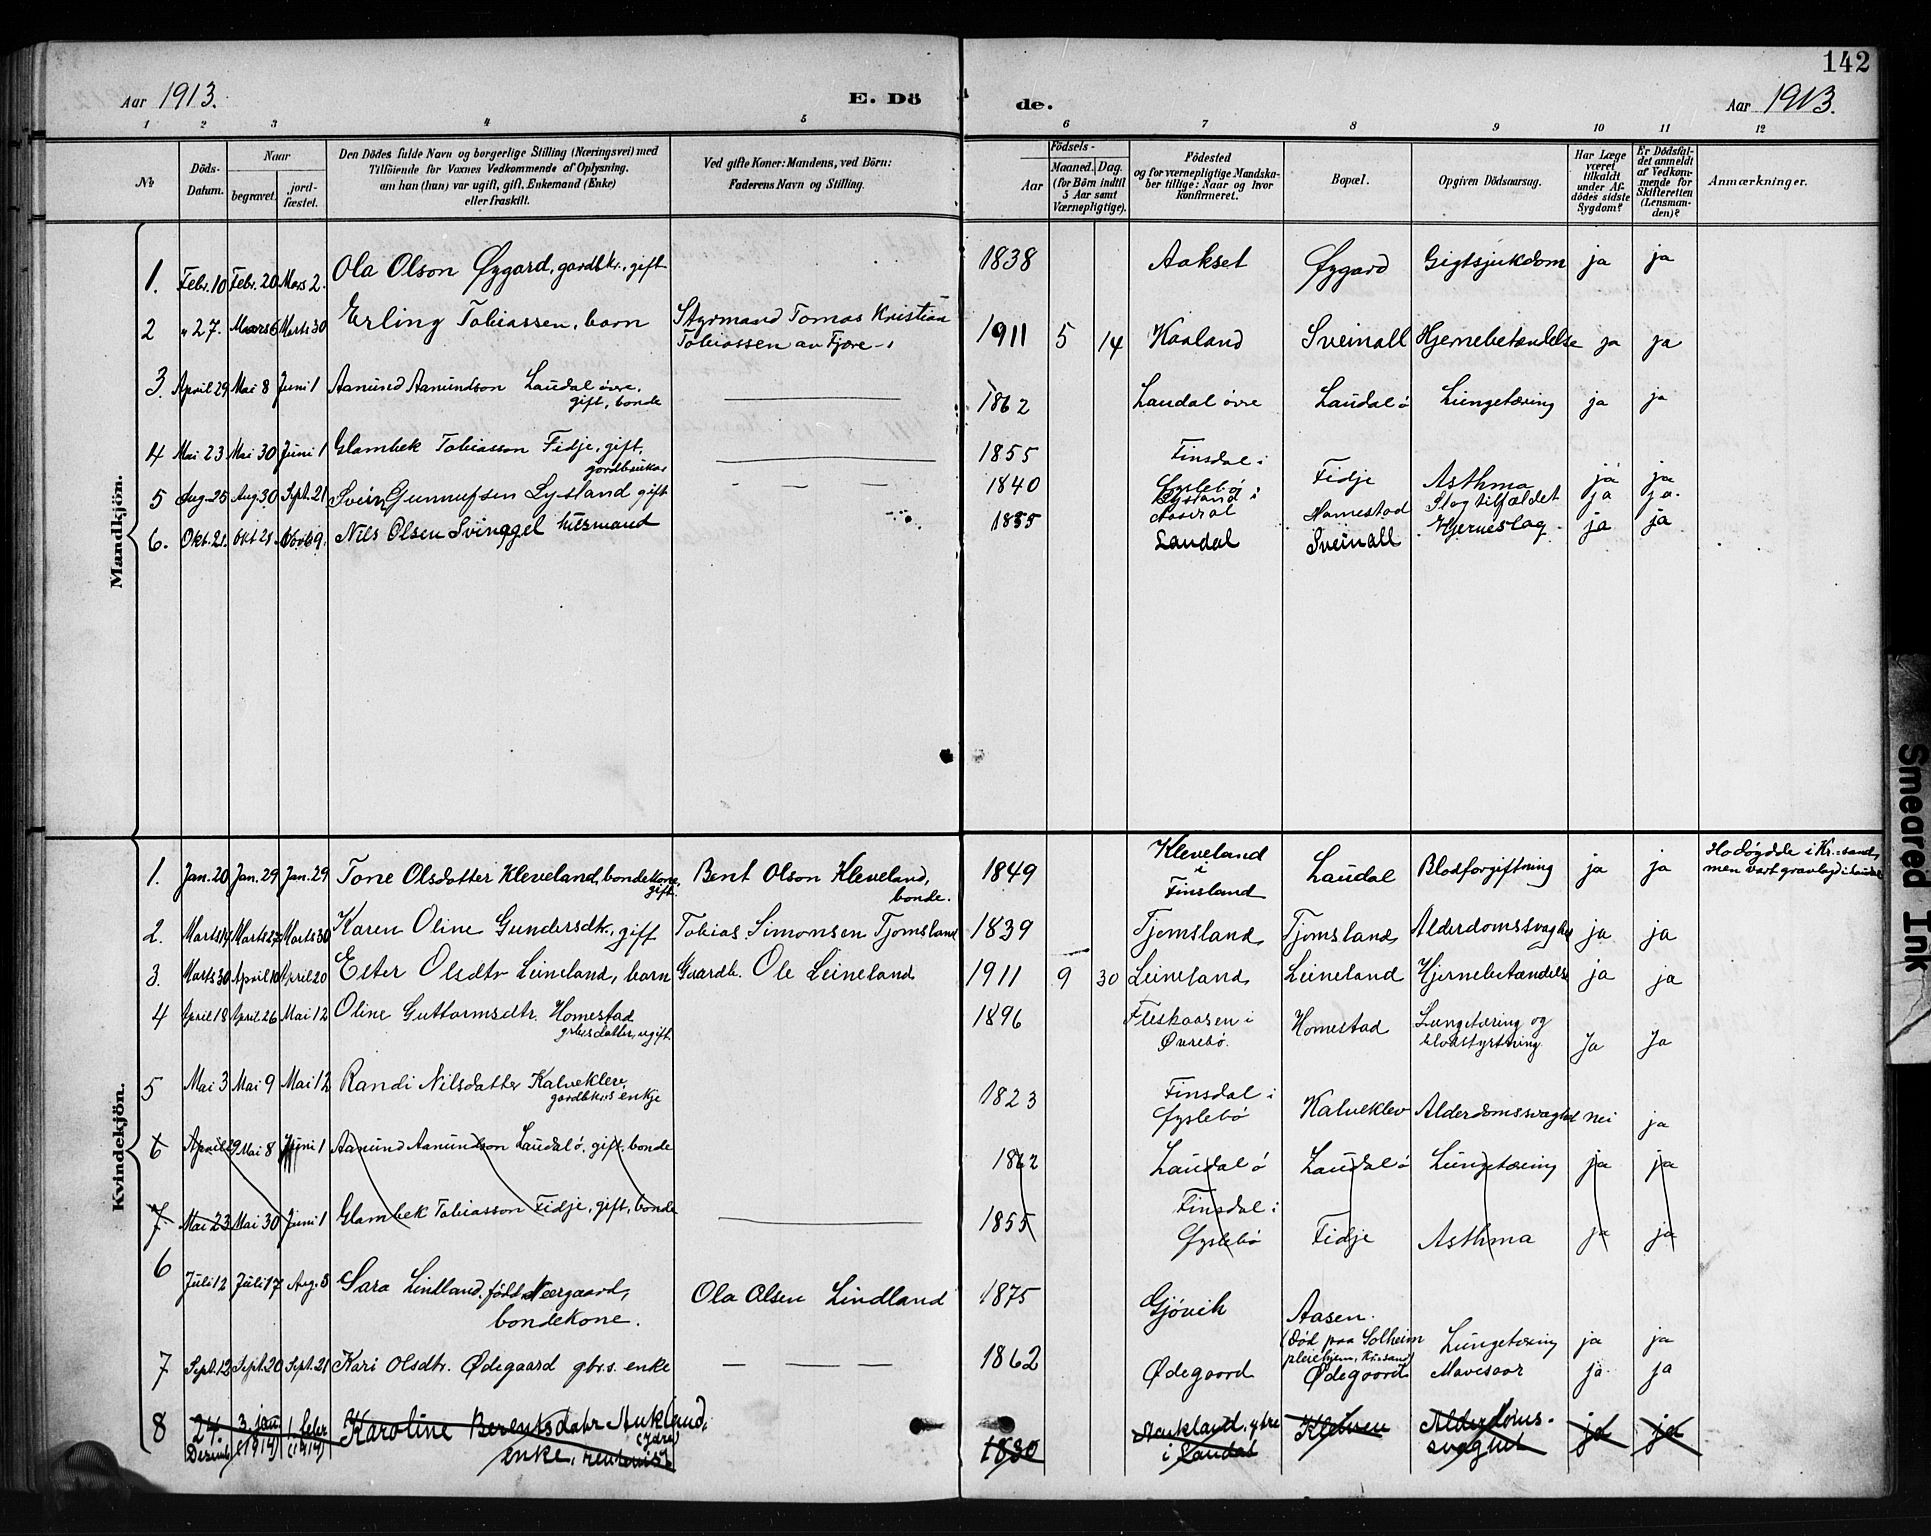 142
Aar 1913.
E. Dö
de.
Aar 1913.
1 2 3 4 5 6 7 8 9 10 11 12
№
Döds-Datum.
Naar
begravet.
jord-fæstet.
Den Dödes fulde Navn og borgerlige Stilling (Næringsvei) med
Tilföiende for Voxnes Vedkommende af Oplysning.
om han (hun) var ugift, gift, Enkemand (Enke)
eller fraskilt.
Ved gifte Koner: Mandens, ved Börn:
Faderens Navn og Stilling.
Födsels-
Aar
Maaned. Dag.
(for Börn indtil
5 Aar samt
Værnepligtige).
Födested
og for værnepligtige Mandska-
ber tillige: Naar og hvor
konfirmeret.
Bopæl.
Opgiven Dödsaarsag.
Har Læge
været
tilkaldt
under Af-
dödes sidste
Sygdom?
Er Dödsfal-
det anmeldt
af Vedkom-
mende for
Skifteretten
(Lensman-
den)?
Anmærkninger.
Mandkjön.
1. Febr. 10 Febr. 20 Mars 2. Ola Olson Øygard, gardbr., gift 1838 Aakset Øygard Gigtsjukdom ja ja
2 " 27. Mars 6 Marts 30 Erling Tobiassen, barn Styrmand Tomas Kristian
Tobiassen av Fjære 1911 5 14 Kaaland Sveinall Hjernebetændelse ja ja
3. April 29 Mai 8 Juni 1 Aanund Aanundson Laudal øvre,
gift, bonde 1862 Laudal øvre Laudal ø Lungetæring ja ja
4 Mai 23 Mai 30 Juni 1 Glambek Tobiasson Fidje, gift,
gardbrukar 1855 Finsdal i
Øyslebø Fidje Asthma ja ja
5 Aug. 25 Aug. 30 Sept. 21 Svein Gunnufsen Lystand gift — — — 1840 Lystand i
Aaseral Homestad Slagtilfældet ja ja.
6. Okt. 21. Okt 29 Novb 9. Nils Olsen Svinagel husmand 1835 Laudal Sveinall Hjerneslag. ja ja
Kvindekjön.
1. Jan. 20 Jan. 29 Jan. 29 Tone Olsdotter Kleveland, bondekone,
gift. Bent Olson Kleveland,
bonde. 1849 Kleveland
i
Finsland Laudal Blodforgiftning ja ja Ho døydde i Kr.sand,
men vart gravlagd i Laudal
2. Marts 14 Marts 27 Marts 30 Karen Oline Gundersdtr., gift Tobias Simonsen Tjomsland 1839 Tjomsland Tjomsland Alderdomssvaghet ja ja
3. Marts 30 April 10 April 20 Ester Olsdtr Leineland, barn Gaardb. Ole Leineland 1911 9 30 Leineland Leineland Hjernebetændelse ja ja
4 April 18 April 26 Mai 12 Oline Guttormsdtr. Homestad
gbrs datter, ugift. 1896 Fleskaasen i
Øvrebø. Homestad Lungetæring og
blodstyrtning Ja Ja
5 Mai 3 Mai 9 Mai 12 Randi Nilsdatter Kalveklev,
gardbkrs enkje 1823 Finsdal i
Øyslebø Kalveklev Alderdomssvaghet nei ja
6 April 29 Mai 8 Juni 1 Aanund Aanundson Laudal ø. gift. bonde 1862 Laudal ø Laudal ø Lungetæring ja ja
7. Mai 23 Mai 30 Juni 1 Glambek Tobiasson Fidje, gift, bonde 1855 Finsdal i
Øyslebø Fidje Asthma ja ja
6 Juli 12 Juli 17 Aug. 3 Sara Lindland, født Neergaard,
bondekone. Ola Olsen Lindland 1875 Gjøvik Aasen.
(Død paa Solheim
pleiehjem, Kr.sand) Lungetæring ja ja
7 Sept. 12 Sept. 20 Sept. 21 Kari Olsdtr. Ødegaard gbr.s. enke — — — 1862 Ødegaard Ødegaard Mavesaar ja ja
8 24.
Desemb. 3. jan
(1914) 1. febr
(1914) Karoline Berentsdatr Aukland,
(ydre)
enke, rentenist 1830 Aukland, ytre
i Laudal Kleiven Alderdoms-
svaghet ja ja
Smeared Ink